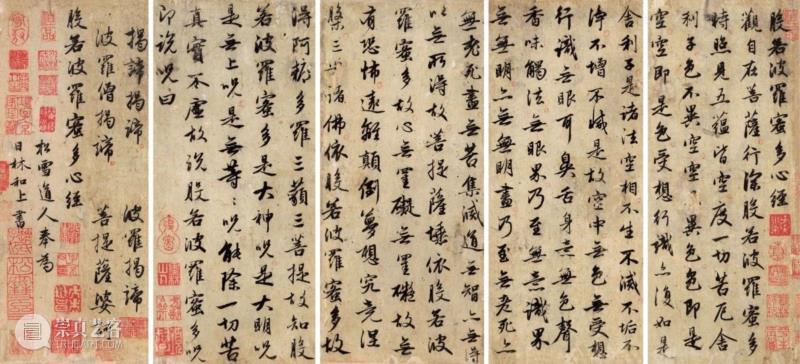 般若波羅蜜多心經
觀自在菩薩行深般若波羅蜜多
時照見五蘊皆空度一切苦厄舍
利子色不異空空不異色色即是
空空即是色受想行識亦復如是
舍利子是諸法空相不生不滅不垢不
淨不增不減是故空中無色無受想
行識無眼耳鼻舌身意無色聲
香味觸法無眼界乃至無意識界
無無明亦無無明盡乃至無老死亦
無老死盡無苦集滅道無智亦無得
以無所得故菩提薩埵依般若波
羅蜜多故心無罣礙無罣礙故無
有恐怖遠離顛倒夢想究竟涅
槃三世諸佛依般若波羅蜜多故
得阿耨多羅三藐三菩提故知般
若波羅蜜多是大神咒是大明咒
是無上咒是無等等咒能除一切苦
真實不虛故說般若波羅蜜多咒
即說咒曰
揭諦揭諦 波羅揭諦
波羅僧揭諦 菩提薩婆訶
般若波羅蜜多心經
松雪道人奉為
日林和上書
崇真艺客